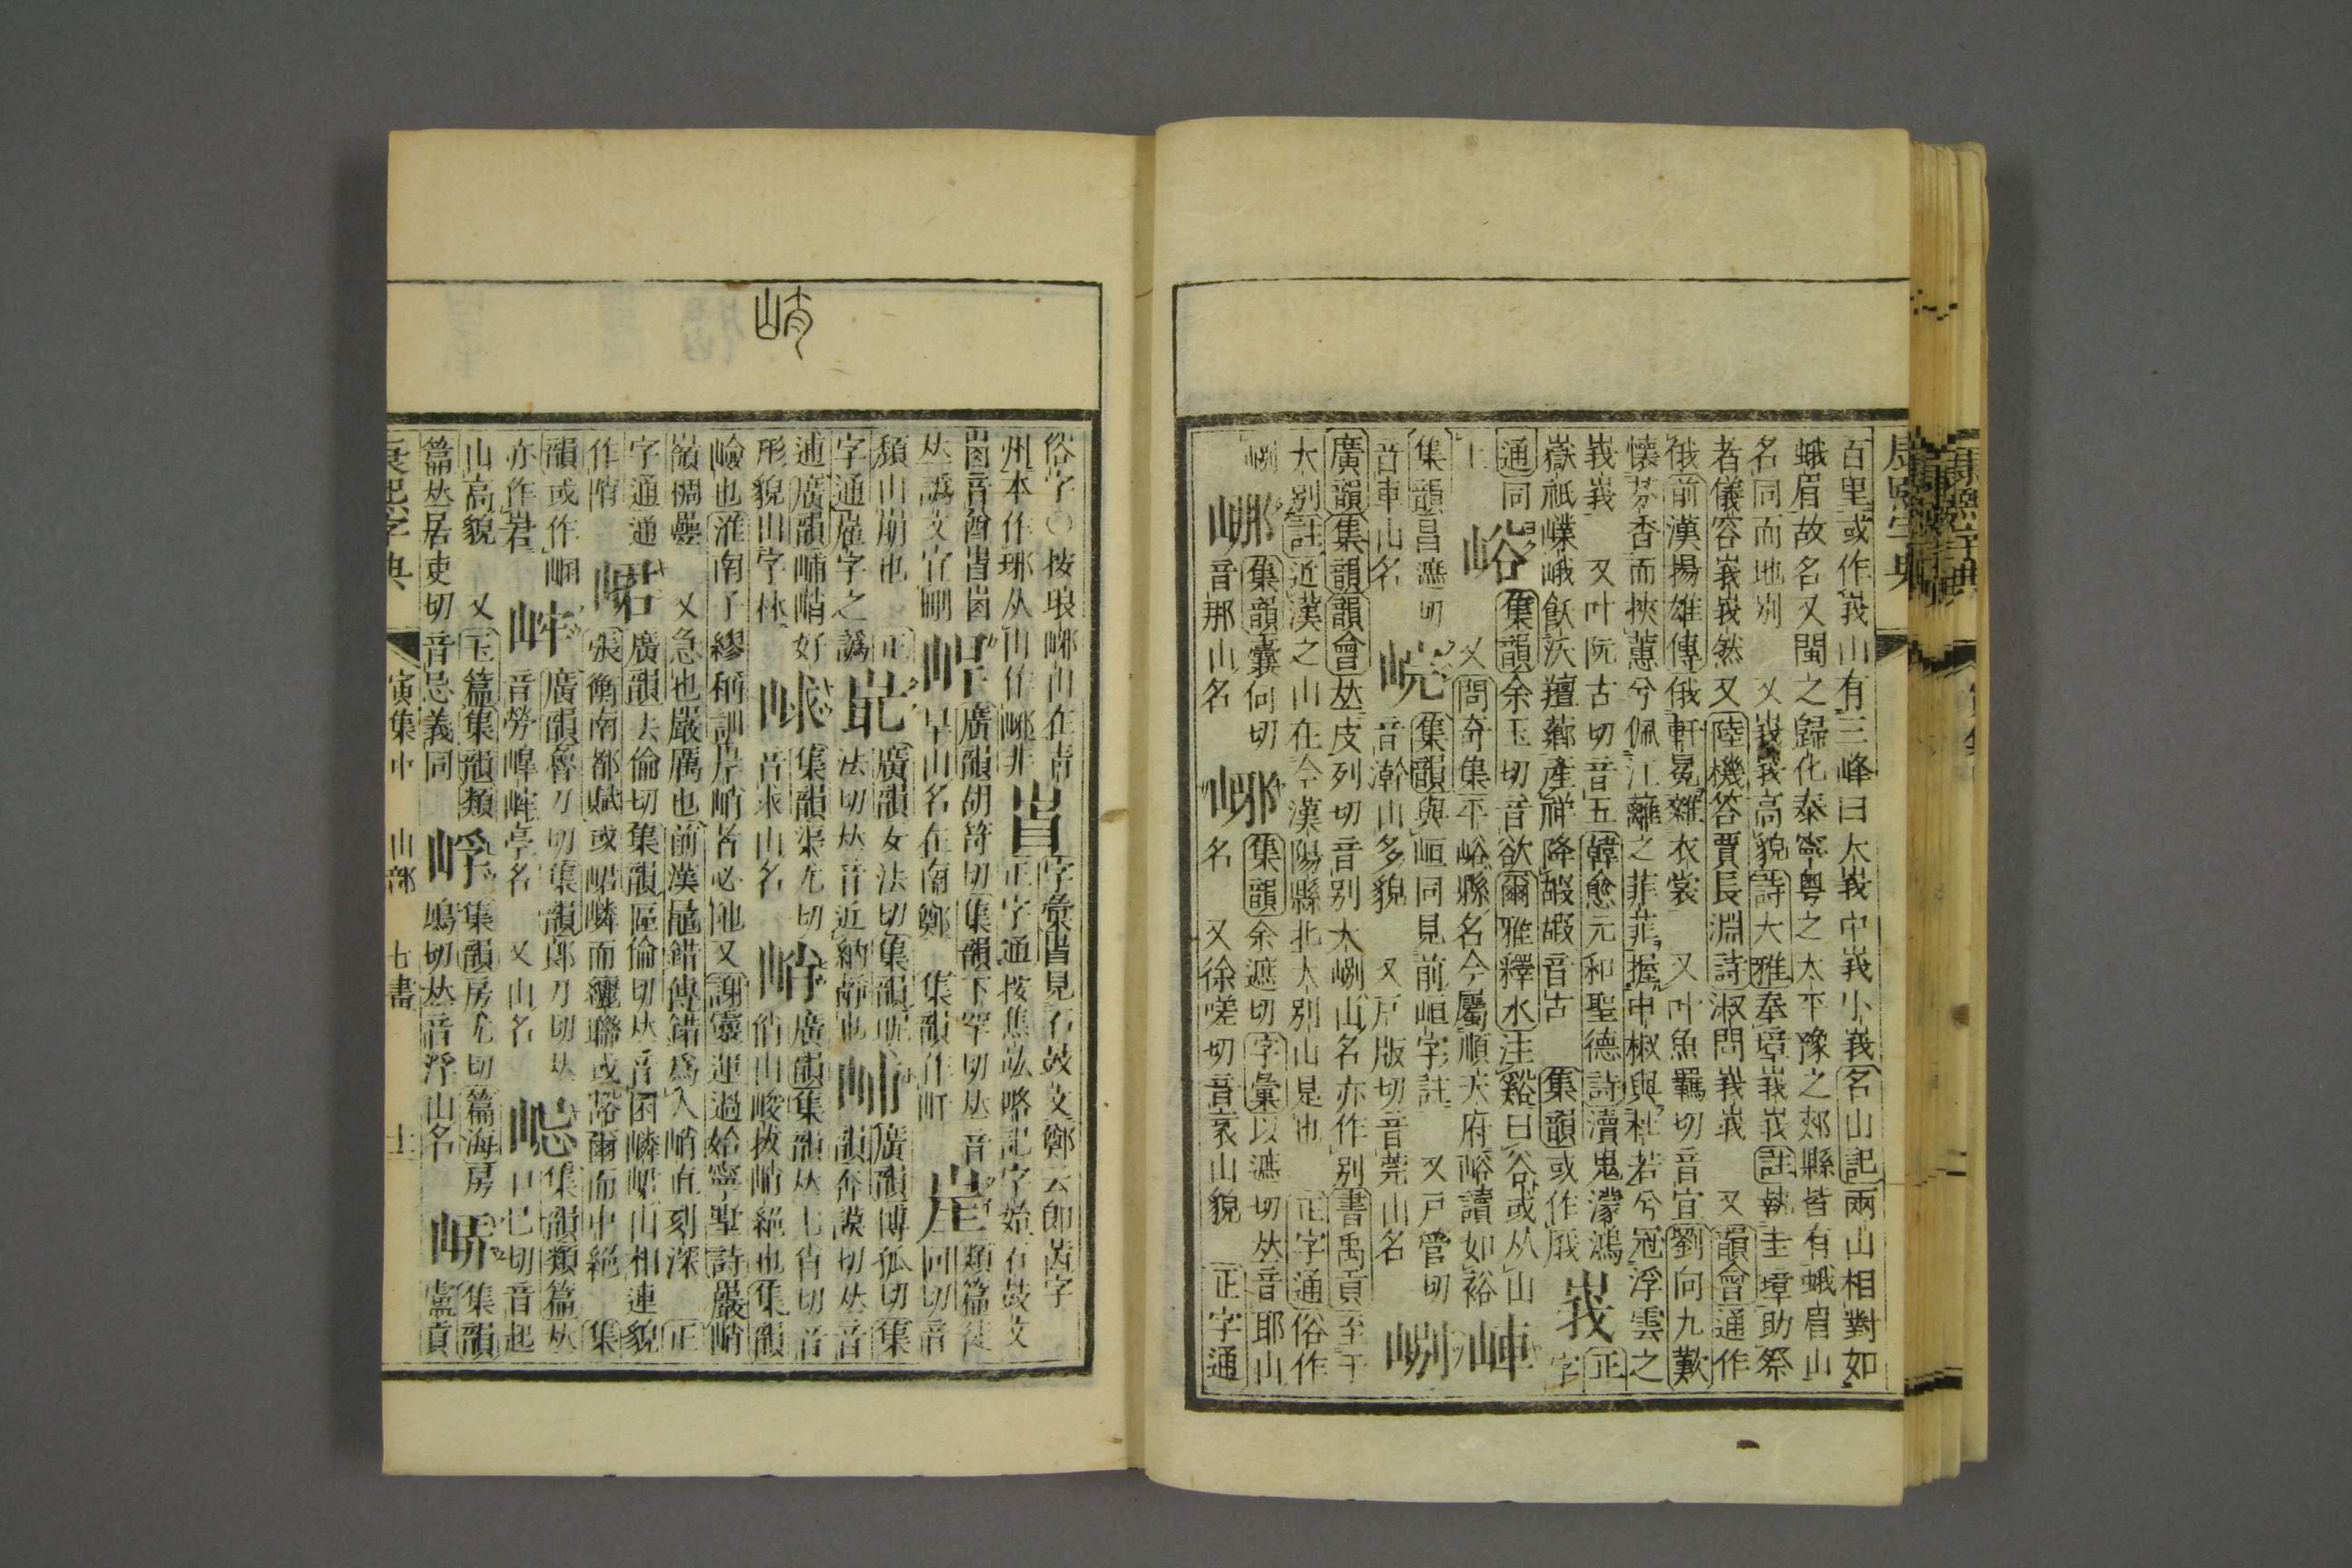 百里或作峩山有三峰曰大峩中峩小峩名山記兩山相對如
蛾眉故名又閩之歸化泰寧粵之太平豫之郟縣皆有蛾眉山
名同而地別 又峩峩高貌詩大雅奉璋峩峩註執圭璋助祭
者儀容峩峩然又陸機答賈長淵詩淑問峩峩 又韻會通作
俄前漢揚雄傳俄軒冕雜衣裳 又叶魚羈切音宜劉向九歎
懷芬香而挾蕙兮佩江蘺之菲菲握申椒與杜若兮冠浮雲之
峩峩 又叶阮古切音五韓愈元和聖德詩瀆鬼濛鴻
嶽祇嶫峨飫沃羶薌產祥降嘏嘏音古 集韻或作峨 峩 正字
通同上 峪 集韻余玉切音欲爾雅釋水注谿曰谷或从山
又問奇集平峪縣名今屬順天府峪讀如裕 㟃
集韻昌遮切音車山名 㟋 集韻與峘同見前峘字註 又戸管切
音澣山多貌 又戸版切音莞山名 㟅
廣韻集韻韻會𠀤皮列切音別大㟅山名亦作別書禹貢至于
大別註近漢之山在今漢陽縣北大別山是也 正字通俗作
㟅 集韻囊何切音那山名 集韻余遮切字彙以遮切𠀤音耶山
名 又徐嗟切音衺山貌 正字通
俗字○按琅琊山在靑州本作琊从山作㟎非 字彙𣅀見石鼓文鄭云卽茜字
正字通按焦竑略記字始石鼓文
廣韻胡笴切集韻下罕切𠀤音旱山名在南鄭 集韻作屽
類篇徒回切音頹山崩也 正字通𨹹字之譌
廣韻女法切集韻昵法切𠀤音近納
廣韻博孤切集韻奔謨切𠀤音逋廣韻峬峭好形貌山字林
㟈 集韻渠尤切音求山名
峭 廣韻集韻𠀤七肖切音俏山峻拔峭絕也集韻
嶮也淮南子繆稱訓岸峭者必陁又謝靈運過始寧墅詩巖峭
嶺稠疊 又急也嚴厲也前漢鼂錯傳錯爲人峭直刻深 正
字通通作陗 峮 廣韻去倫切集韻區倫切𠀤音囷嶙峮山相連貌
張衡南都賦或峮嶙而纚聯或豁爾而中絕 集
韻或作㟒亦作峮 廣韻魯刀切集韻郎刀切𠀤
音勞㟉嶂亭名 又山名 㟓 集韻類篇𠀤口已切音起
山高貌 又玉篇集韻類篇𠀤居吏切音忌義同 㟊 集韻房尤切篇海房
鳩切𠀤音浮山名 集韻
寅集中 山部 七畫
峭